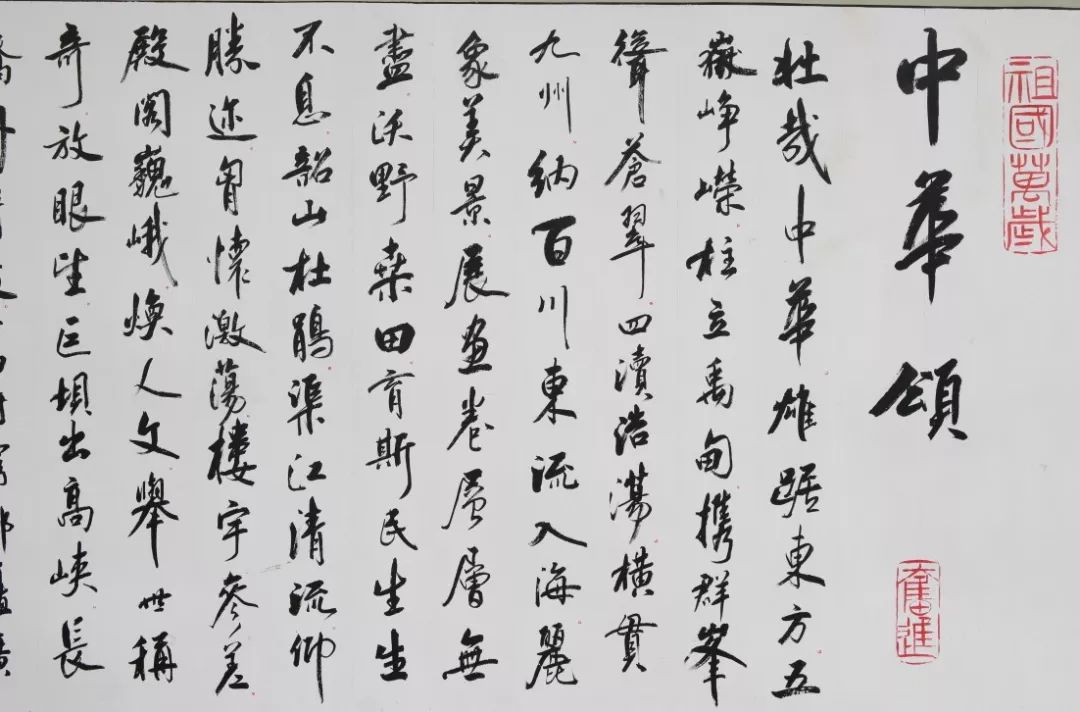 祖國萬歲
中華頌
奮進
壯哉中華雄踞東方五
嶽峥嶸柱立禹甸携群峯
聳蒼翠四瀆浩蕩橫貫
九州納百川東流入海麗
象美景展畫卷層層無
盡沃野桑田育斯民生生
不息韶山杜鵑渠江清流仰
勝迹胷懷激蕩樓宇參差
殿閣巍峨焕人文舉世稱
奇放眼望巨壩出高峽長